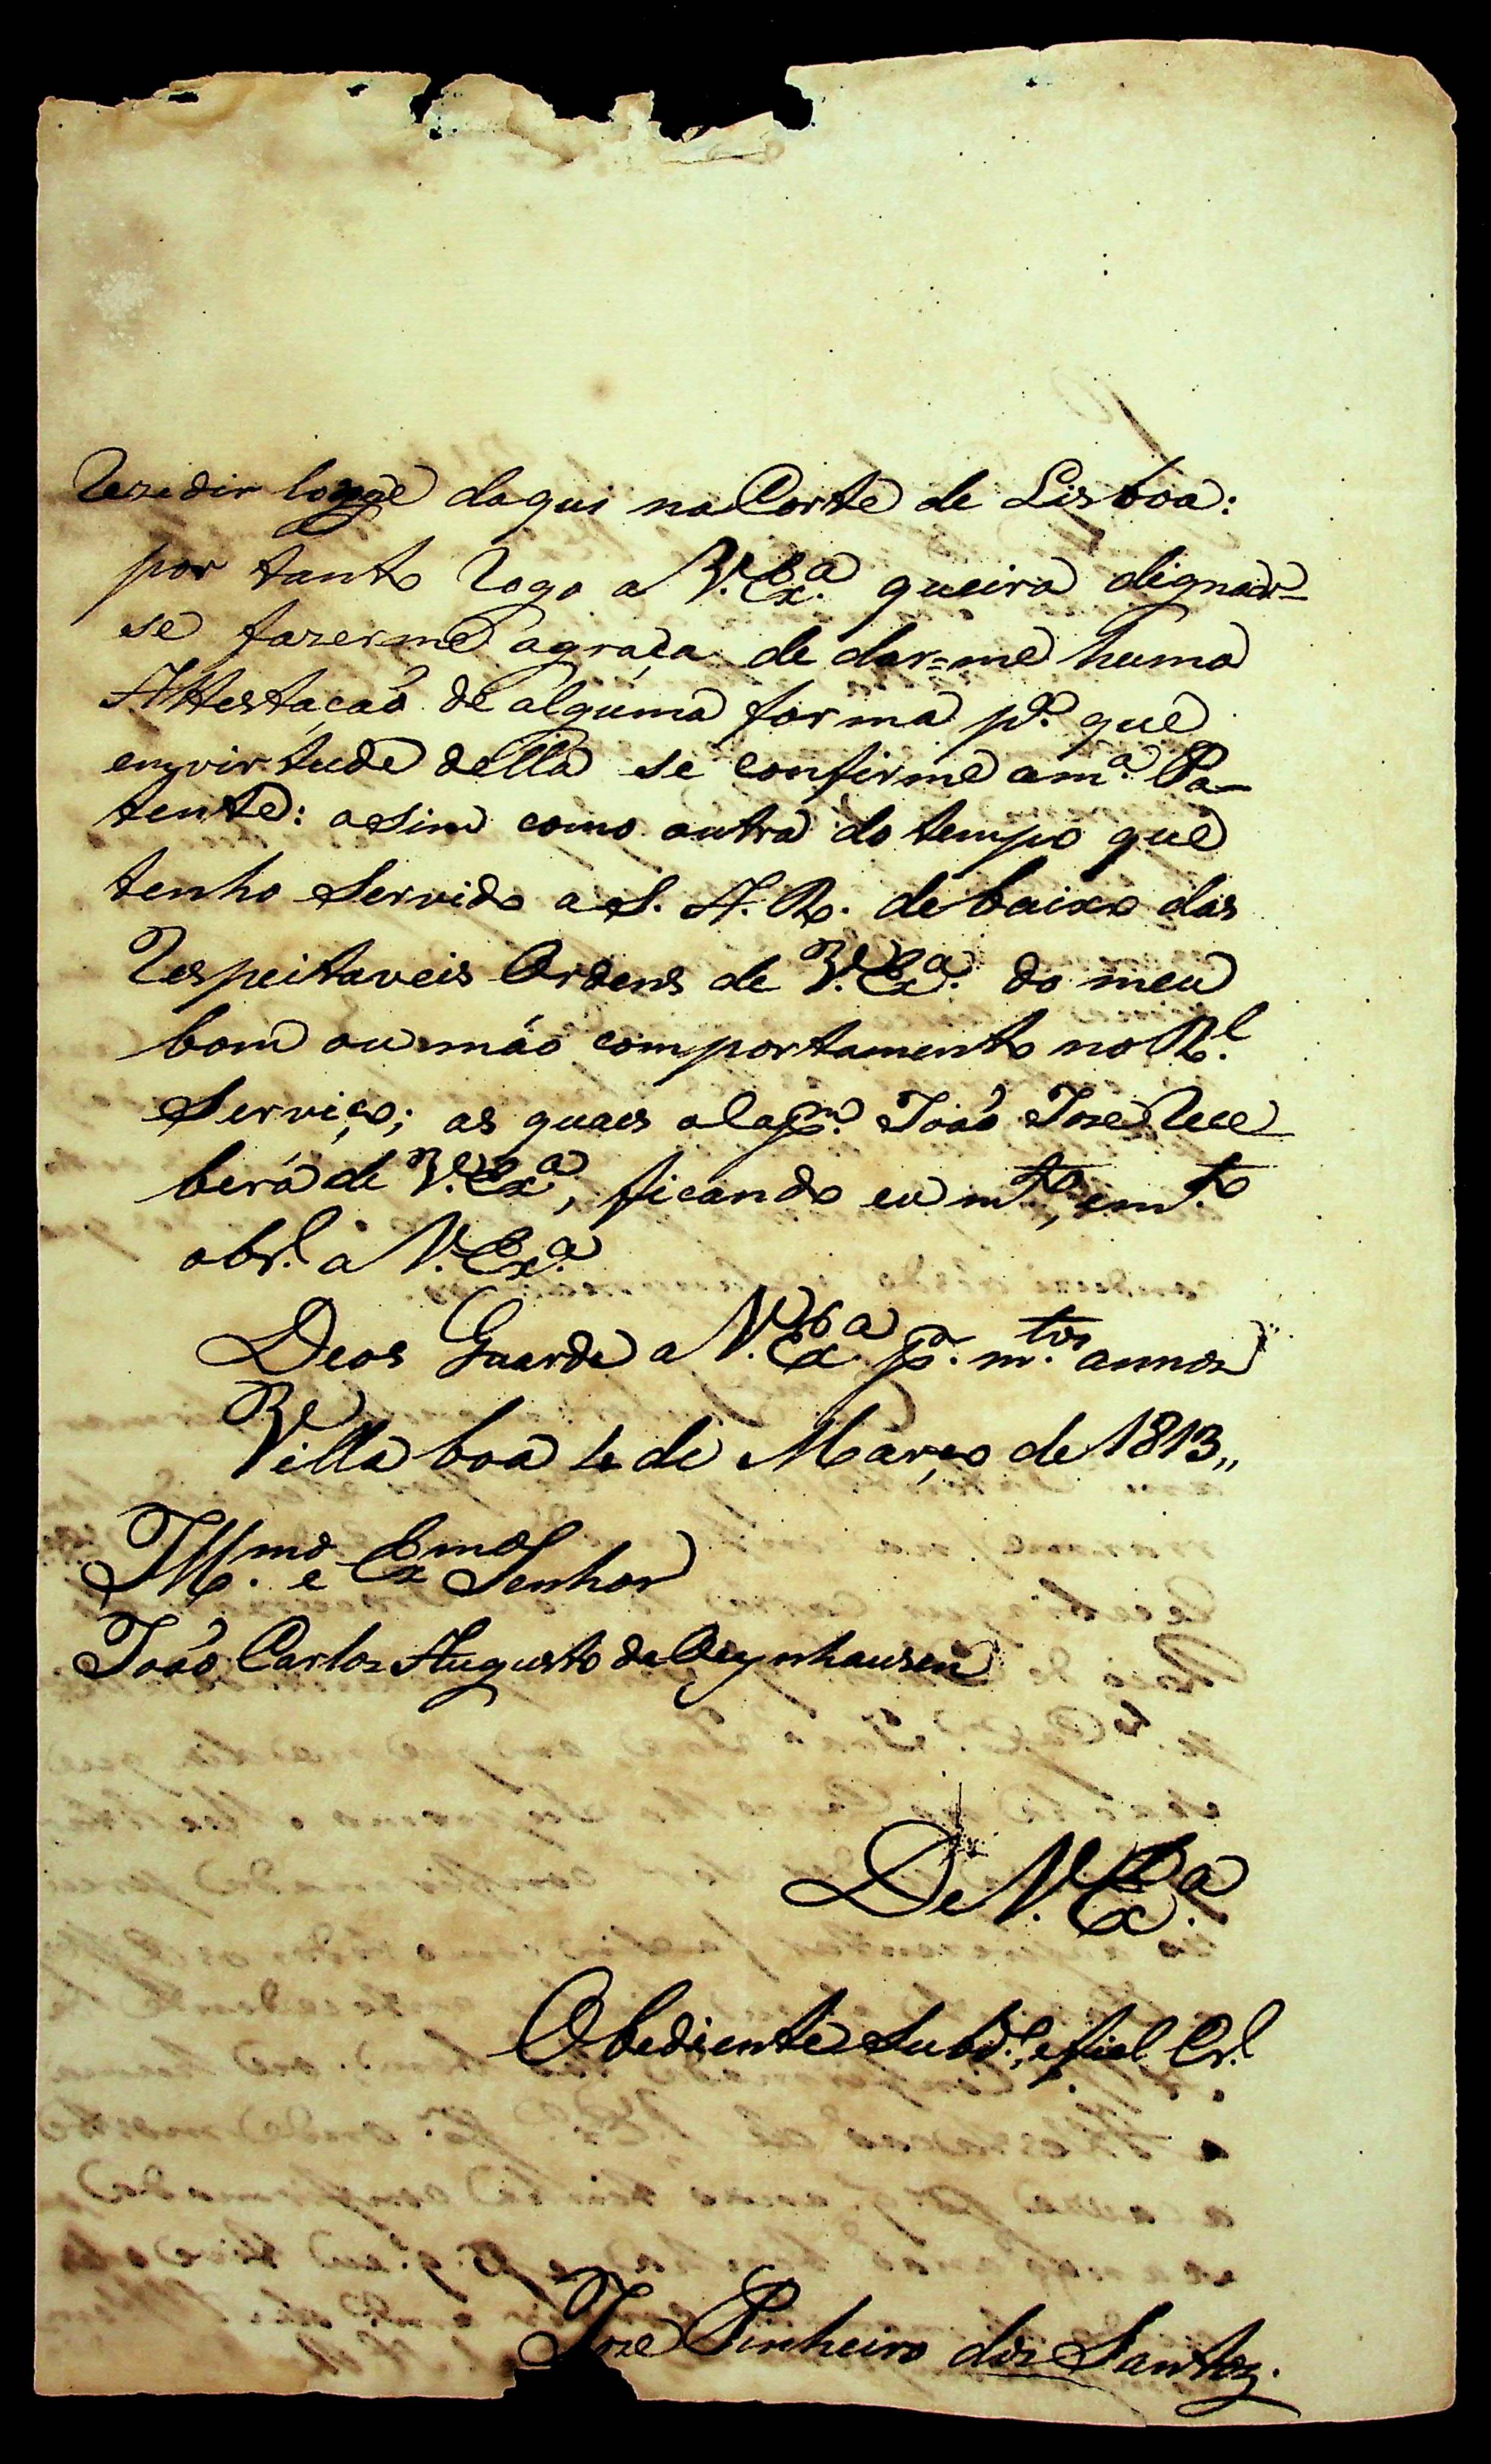 Rezedir longe daqui na Corte de Lisboa:
por tanto Rogo a V. Ex.ª queira dignar-
se fazerme agraça de dar=me huma
Attestação de alguma forma p.ª que
emvirtude della se confirme am.ª Pa-
tente: asim como outra do tempo que
tenho Servido a S. A. R. debaixo das
Respeitaveis Ordens de V. Ex.ª do meu
bom ou máo comportamento no R.l
Serviço; as quaes o Cap.m João Joze Rece
berá de V. Ex.ª, ficando eu m.to, em.to
obr.º a V. Ex.ª
Deos Guarde a V. Ex.ª p.r m.tos annos
Villa boa 4 de Março de 1813,,
Ill.mo e Ex.mo Senhor
João Carlos Augusto de Oeynhausen
De V. Ex.ª
Obediente Subd.º, e fiel Cr.º
Joze Pinheiro dos Santos.